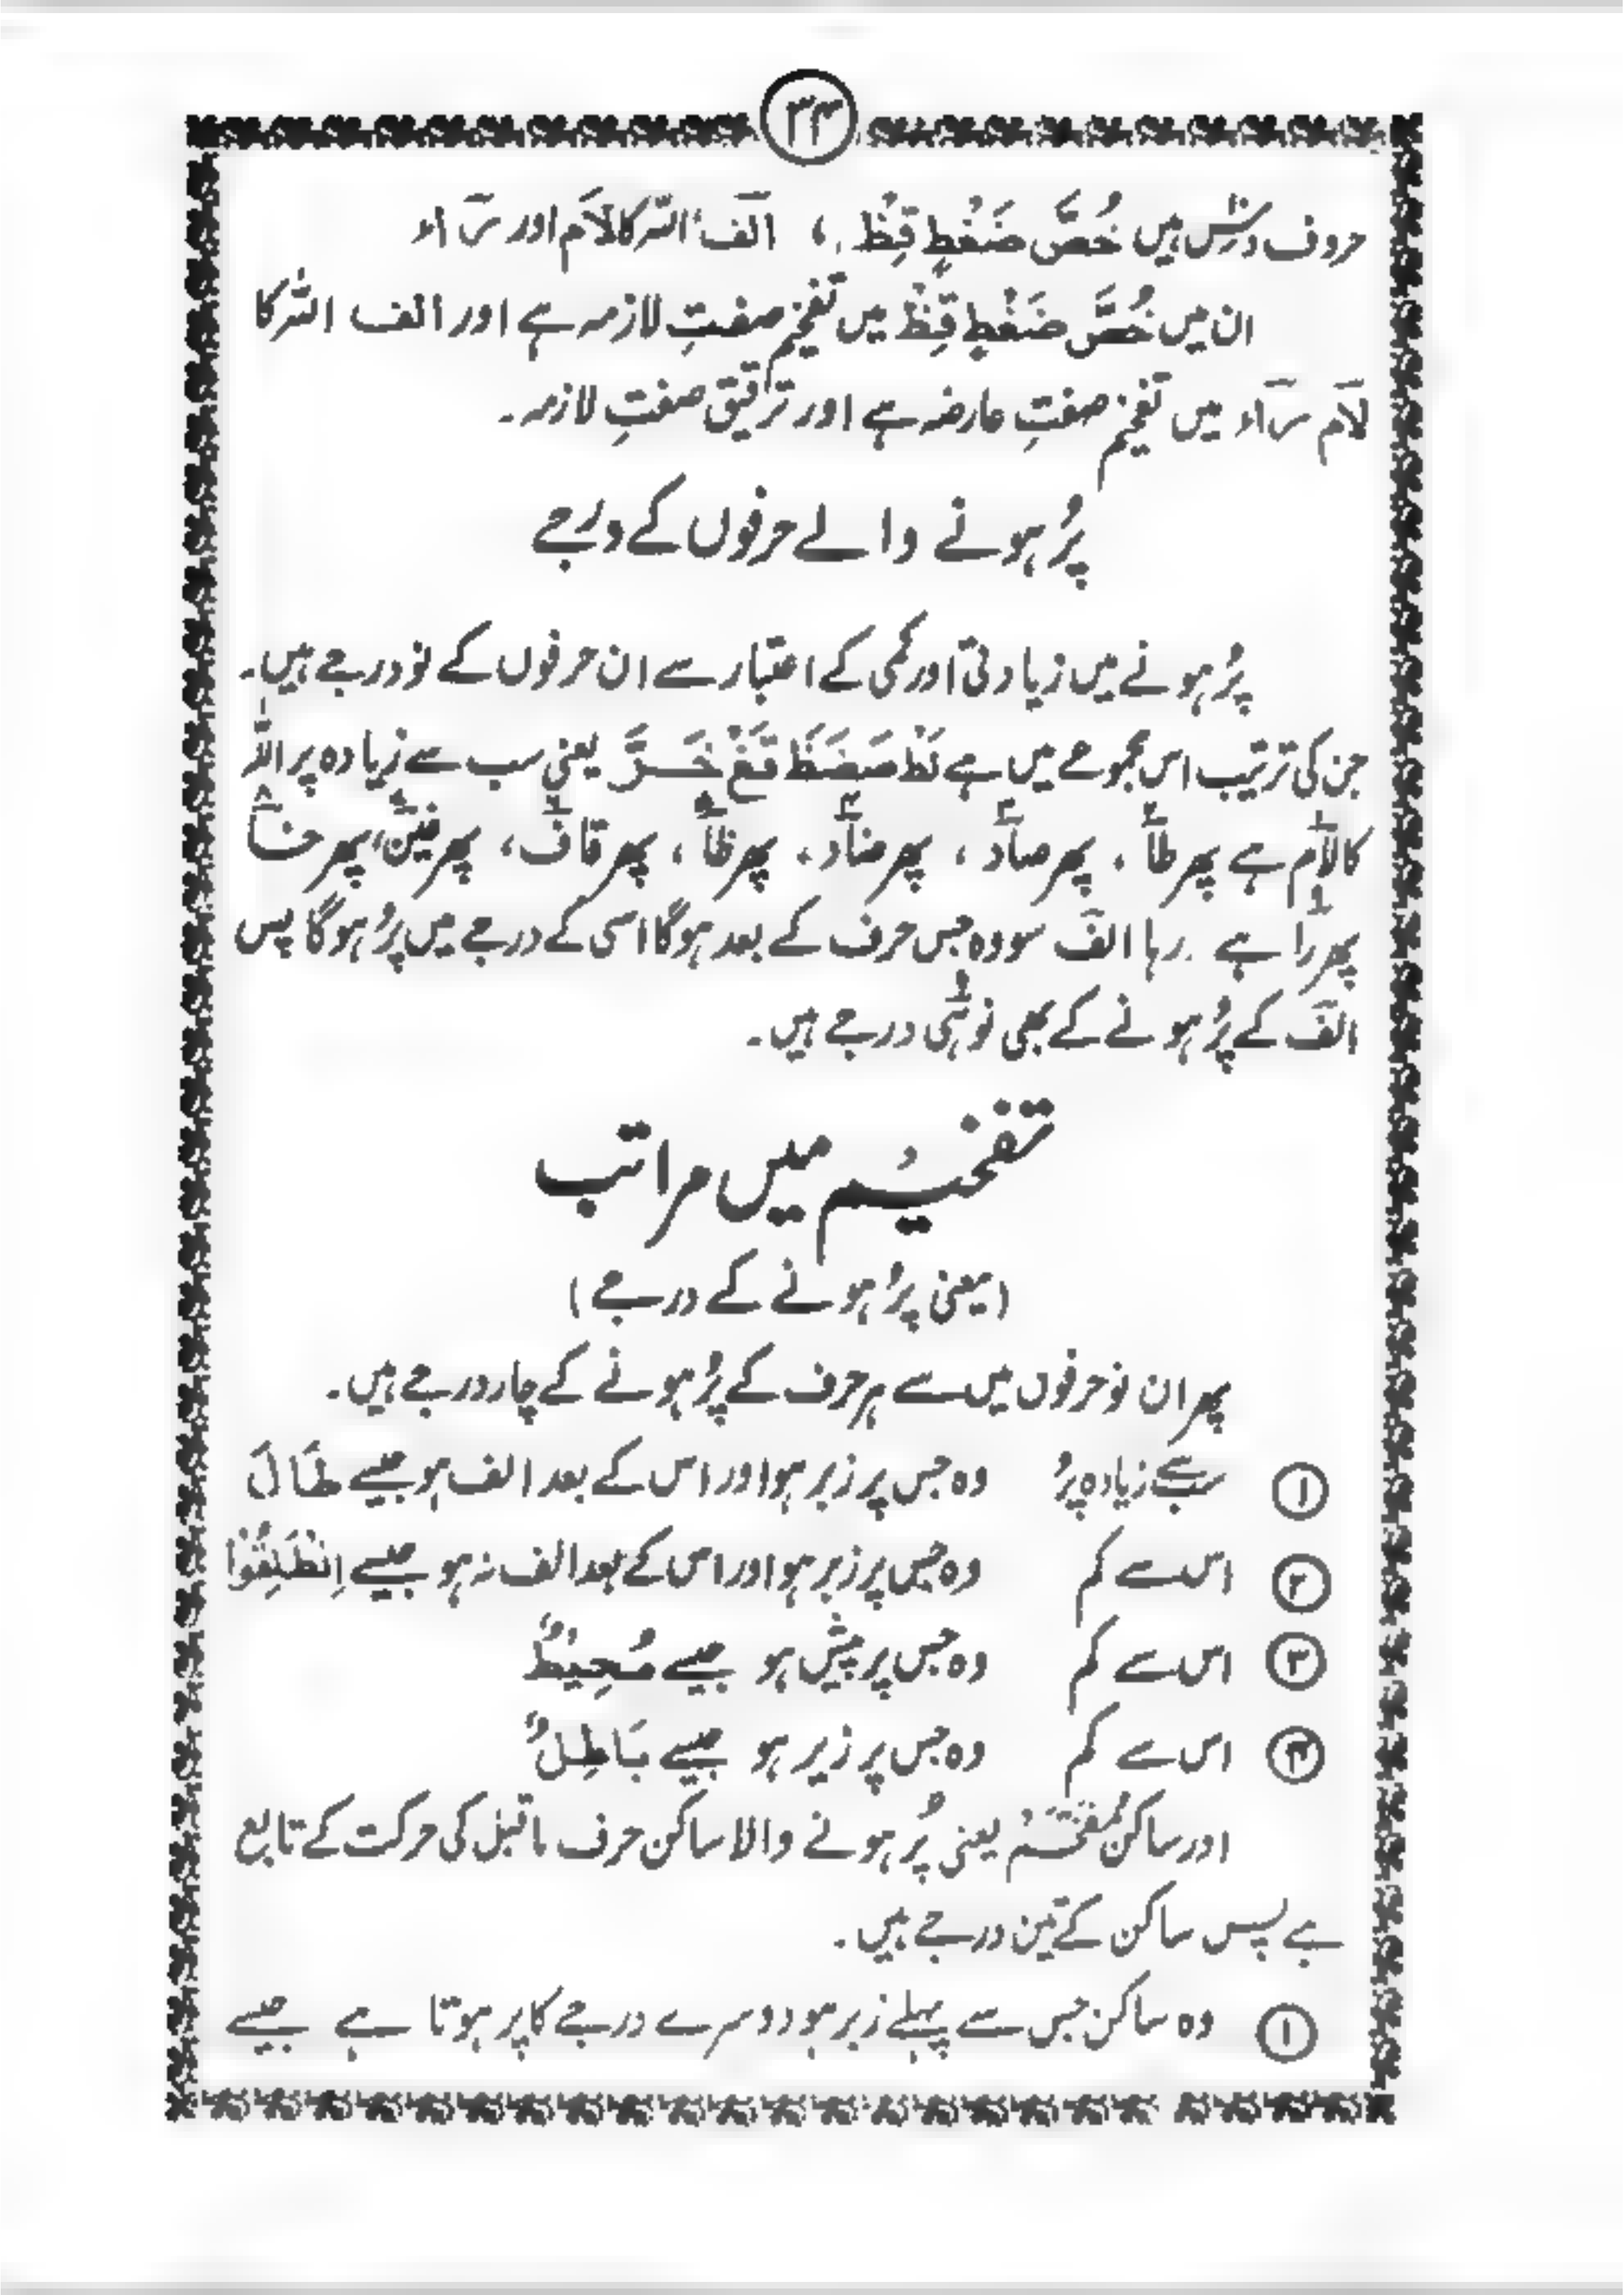 ۳۴
حروف دسؔ ہیں خُصَّ ضَغْطٍ قِظْ ، الٓف اللّٰہ کا لآم اور سٓآء
ان میں خُصَّ ضَغْطٍ قِظْ میں تفخیم صفتِ لازمہ ہے اور الف اللّٰہ کا
لآم سٓآء میں تفخیم صفتِ عارضہ ہے اور ترقیق صفتِ لازمہ۔
پُر ہونے والے حرفوں کے درجے
پُر ہونے میں زیادتی اور کمی کے اعتبار سے ان حرفوں کے نو درجے ہیں۔
جن کی ترتیب اس مجموعے میں ہے صَضَظَ قَغْ خَرَّ یعنی سب سے زیادہ پر اللّٰہ
کا لآم ہے پھر طآ ، پھر صآد ، پھر ضآد ، پھر ظآ ، پھر قاف ، پھر غین ، پھر خآ
پھر رآ ہے ۔ رہا الف سو وہ جس حرف کے بعد ہوگا اسی کے درجے میں پُر ہوگا پس
الف کے پُر ہونے کے بھی نو ہی درجے ہیں۔
تفخیم میں مراتب
(یعنی پُر ہونے کے درجے)
پھر ان نو حرفوں میں سے ہر حرف کے پُر ہونے کے چار درجے ہیں۔
① سب سے زیادہ پُر وہ جس پر زبر ہو اور اس کے بعد الف ہو جیسے طَالَ
② اس سے کم وہ جس پر زبر ہو اور اس کے بعد الف نہ ہو جیسے اِنْطَلِقُوْا
③ اس سے کم وہ جس پر پیش ہو جیسے مُحِیْطٌ
④ اس سے کم وہ جس پر زیر ہو جیسے بَاطِلٌ
اور ساکن مُفَخَّمْ یعنی پُر ہونے والا ساکن حرف ماقبل کی حرکت کے تابع
ہے پس ساکن کے تین درجے ہیں۔
① وہ ساکن جس سے پہلے زبر ہو دوسرے درجے کا پر ہوتا ہے جیسے